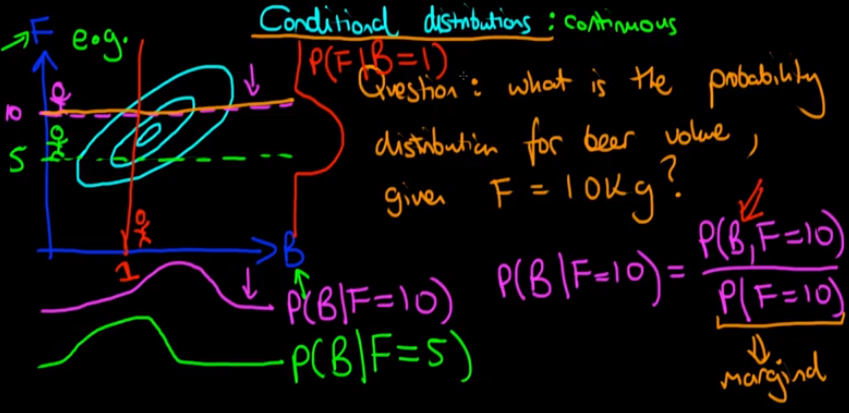 Conditional distributions : continuous
F e.g.
P(F|B=1)
Question: what is the probability
distribution for beer volume,
given F = 10Kg?
10
5
1
B
P(B|F=10)
P(B|F=5)
P(B|F=10) = P(B,F=10)
P(F=10)
marginal